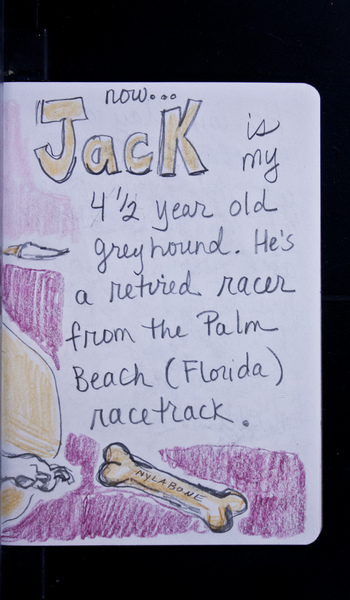 now...
Jack is
my
4 1/2 year old
greyhound. He's
a retired racer
from the Palm
Beach (Florida)
racetrack.
NYLABONE